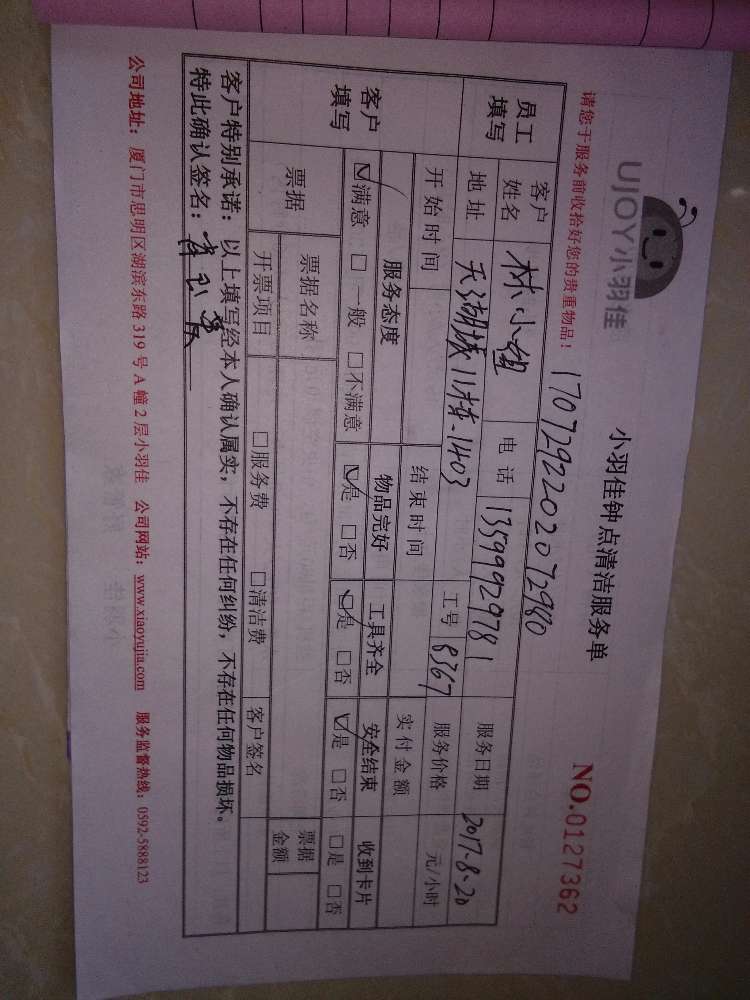 UJOY小羽佳
小羽佳钟点清洁服务单
NO.0127362
请您于服务前收拾好您的贵重物品！
1707292202072980
员工填写 客户姓名 林小姐 电话 13599929781 服务日期 2017-8-20
地址 天湖城11栋-1403 工号 8367 服务价格 元/小时
开始时间 结束时间 实付金额
客户填写 服务态度 物品完好 工具齐全 安全结束 收到卡片
☑满意 □一般 □不满意 ☑是 □否 ☑是 □否 ☑是 □否 □是 □否
票据 票据名称 票据金额
开票项目 □服务费 □清洁费 客户签名
客户特别承诺：以上填写经本人确认属实，不存在任何纠纷，不存在任何物品损坏。
特此确认签名：
公司地址：厦门市思明区湖滨东路319号A幢2层小羽佳 公司网站：www.xiaoyujia.com 服务监督热线：0592-5888123